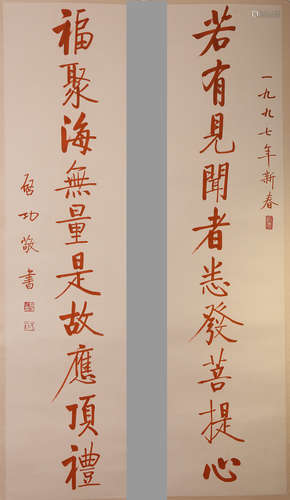 一九九七年新春
若有見聞者悉發菩提心
福聚海無量是故應頂禮
啟功敬書